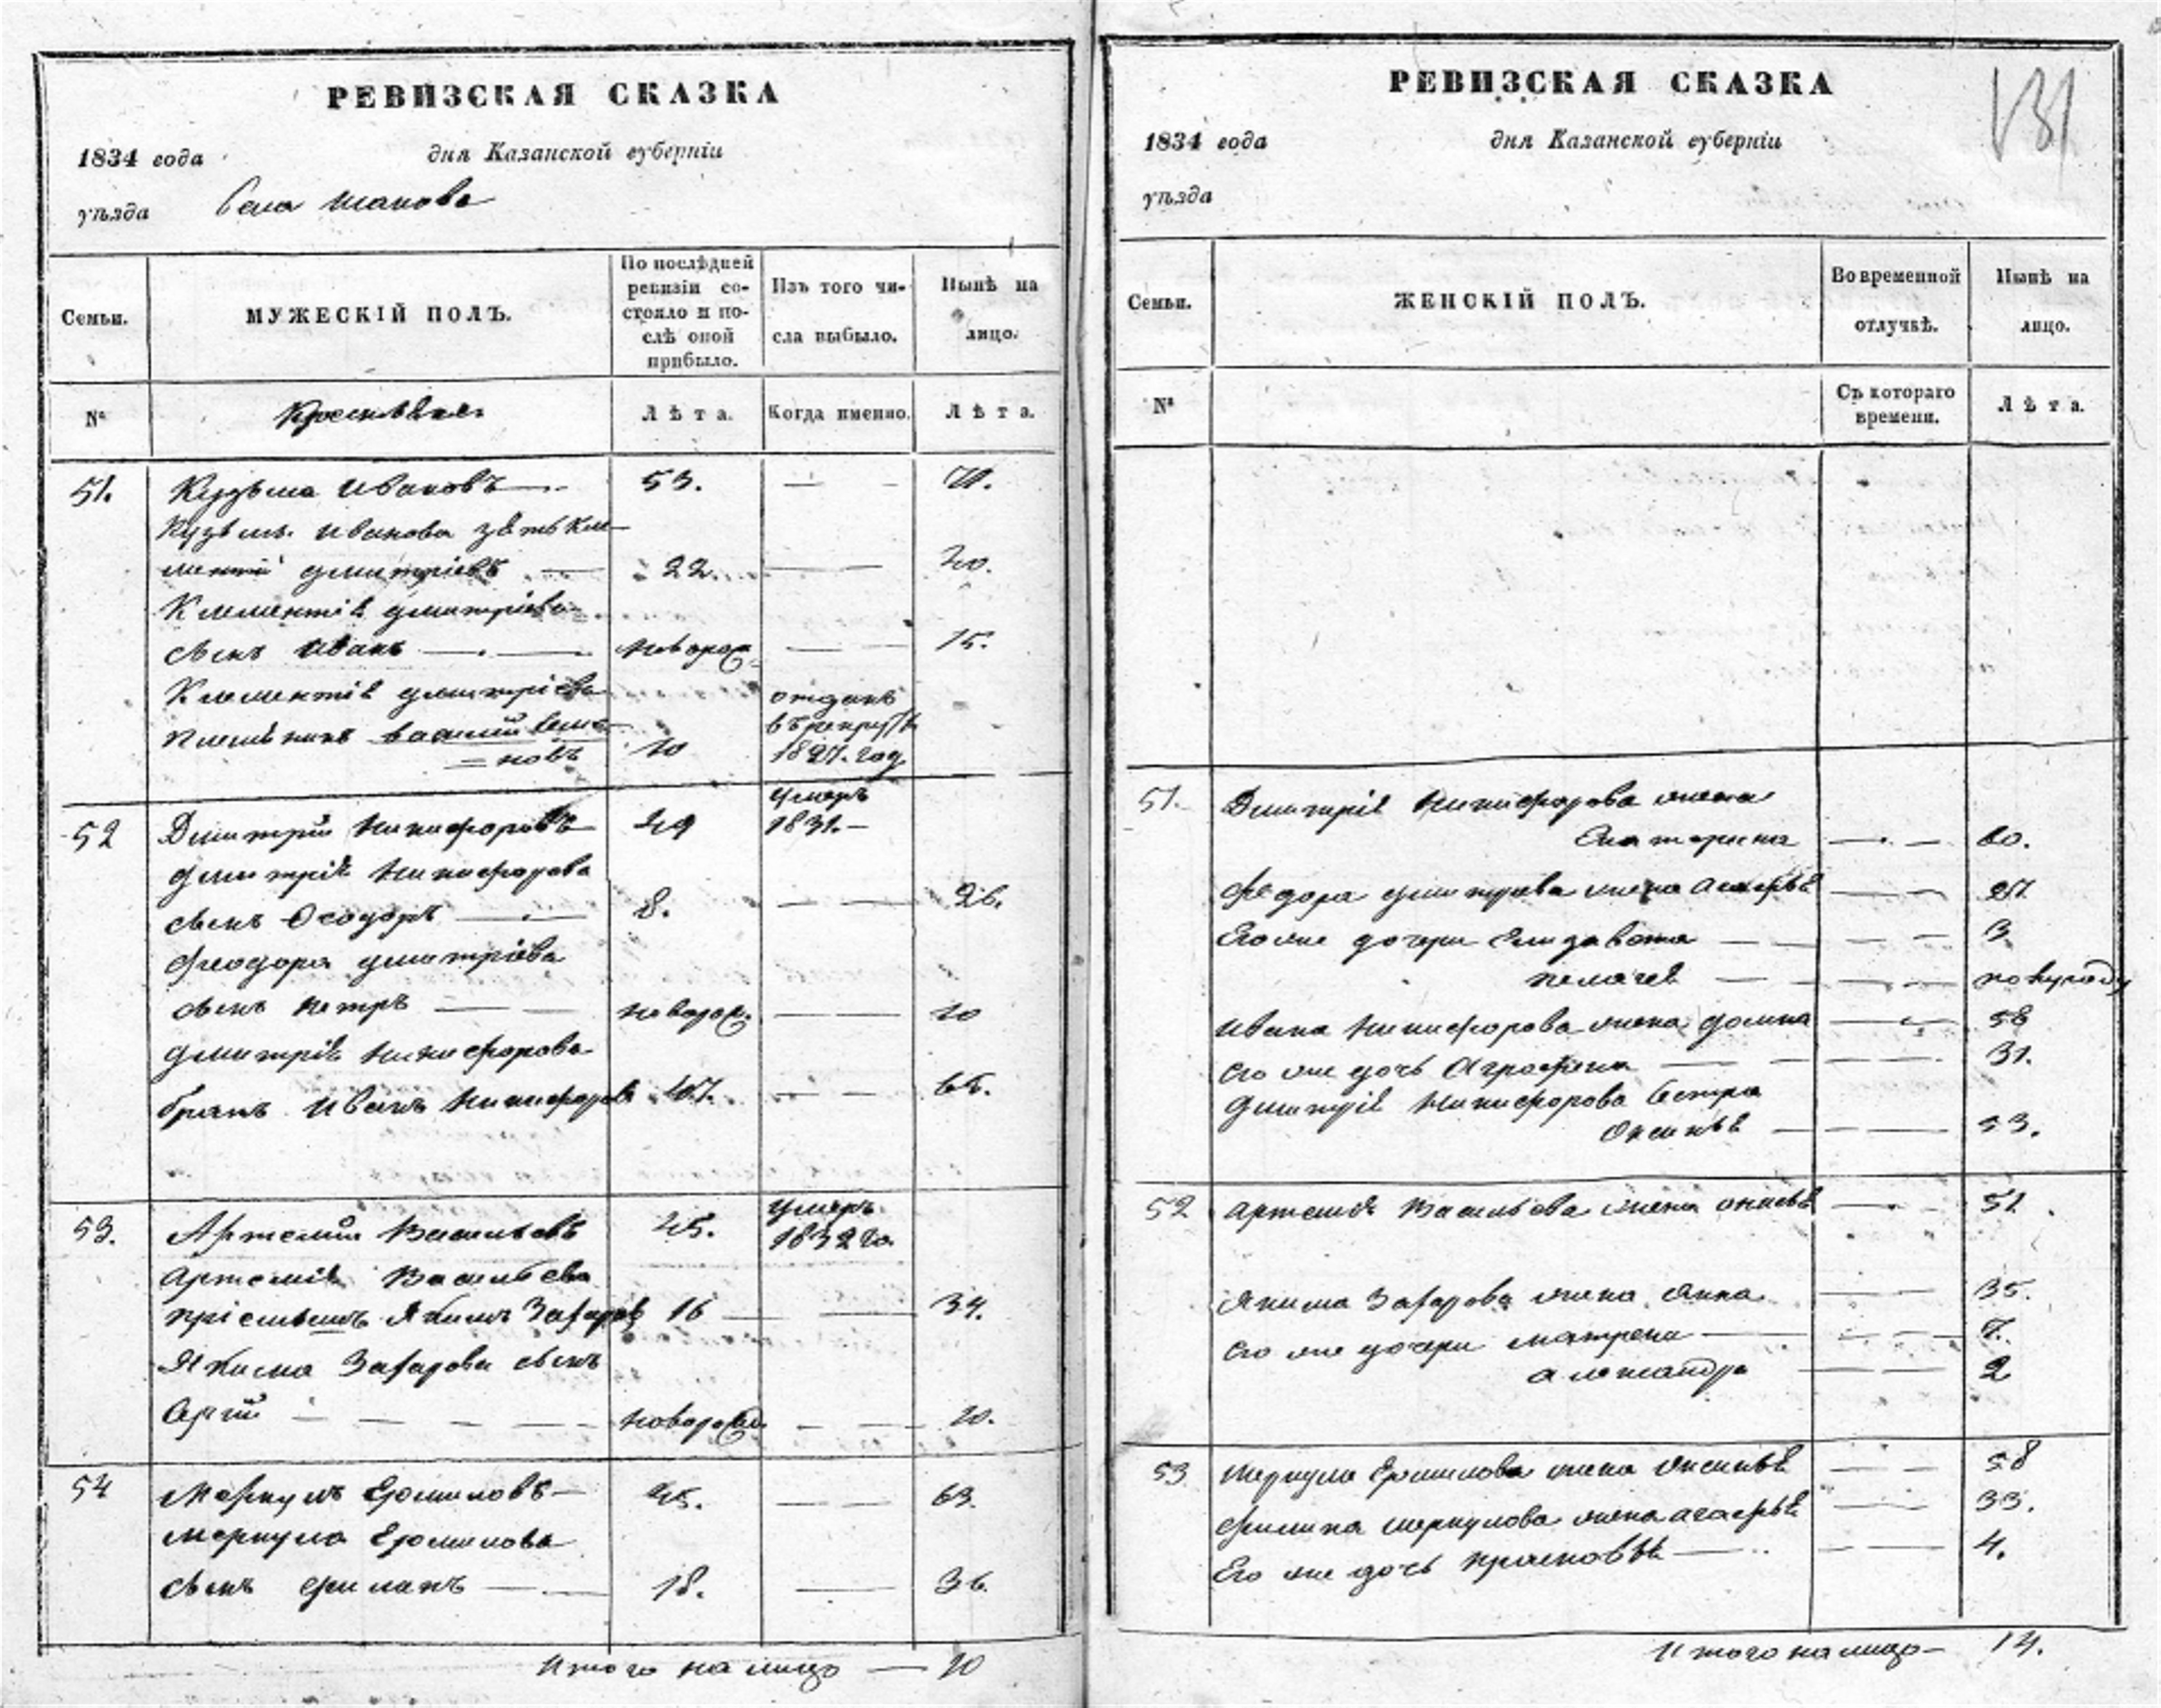 РЕВИЗСКАЯ СКАЗКА
1834 года дня Казанской губерніи
уѣзда Села
Семьи. МУЖЕСКІЙ ПОЛЪ. По послѣдней ревизіи состояло и послѣ оной прибыло. Изъ того числа выбыло. Нынѣ на лицо.
№ Лѣта. Когда именно. Лѣта.
51. Кузьма Ивановъ 53. — 71.
Кузьмы Иванова зять Кле-
ментій Дмитріевъ — 22. — 40.
Клементія Дмитріева
сынъ Иванъ — новорож. — 15.
Клементія Дмитріева отданъ
племянникъ Василій Семе- въ рекруты
=новъ 10 1827. год
52 Дмитрій Никифоровъ 49 умеръ 1831.—
Дмитрія Никифорова
сынъ Ѳеодоръ — 8. — 26.
Феодора Дмитріева
сынъ Петръ — новорож. — 10
Дмитрія Никифорова
братъ Иванъ Никифоровъ 47. — 65.
53. Артемій Васильевъ 45. умеръ 1832 го.
Артемія Васильева
пріемышъ Якимъ Захаровъ 16 — 34.
Якима Захарова сынъ
— новорож. — 10.
54 Меркулъ Ермиловъ — 45. — 63.
Меркула Ермилова
сынъ Филипъ — 18. — 36.
Итого на лицо — 10
РЕВИЗСКАЯ СКАЗКА
131
1834 года дня Казанской губерніи
уѣзда
Семьи. ЖЕНСКІЙ ПОЛЪ. Во временной отлучкѣ. Нынѣ на лицо.
№ Съ котораго времени. Лѣта.
51. Дмитрія Никифорова жена
Екатерина — 60.
Федора Дмитріева жена 27
Его же дочери Елизавета — 3
Пелагея — полугоду
Ивана Никифорова жена Домна — 58
его же дочь Аграфена — 31.
Дмитрія Никифорова сестра
— 53.
52 Артемія Васильева жена — 51.
Якима Захарова жена Анна — 35.
его же дочери Матрена — 7.
Александра — 2
53 Меркула Ермилова жена — 58
Филипа Меркулова жена — 33.
Его же дочь Прасковья — 4.
Итого на лицо — 14.